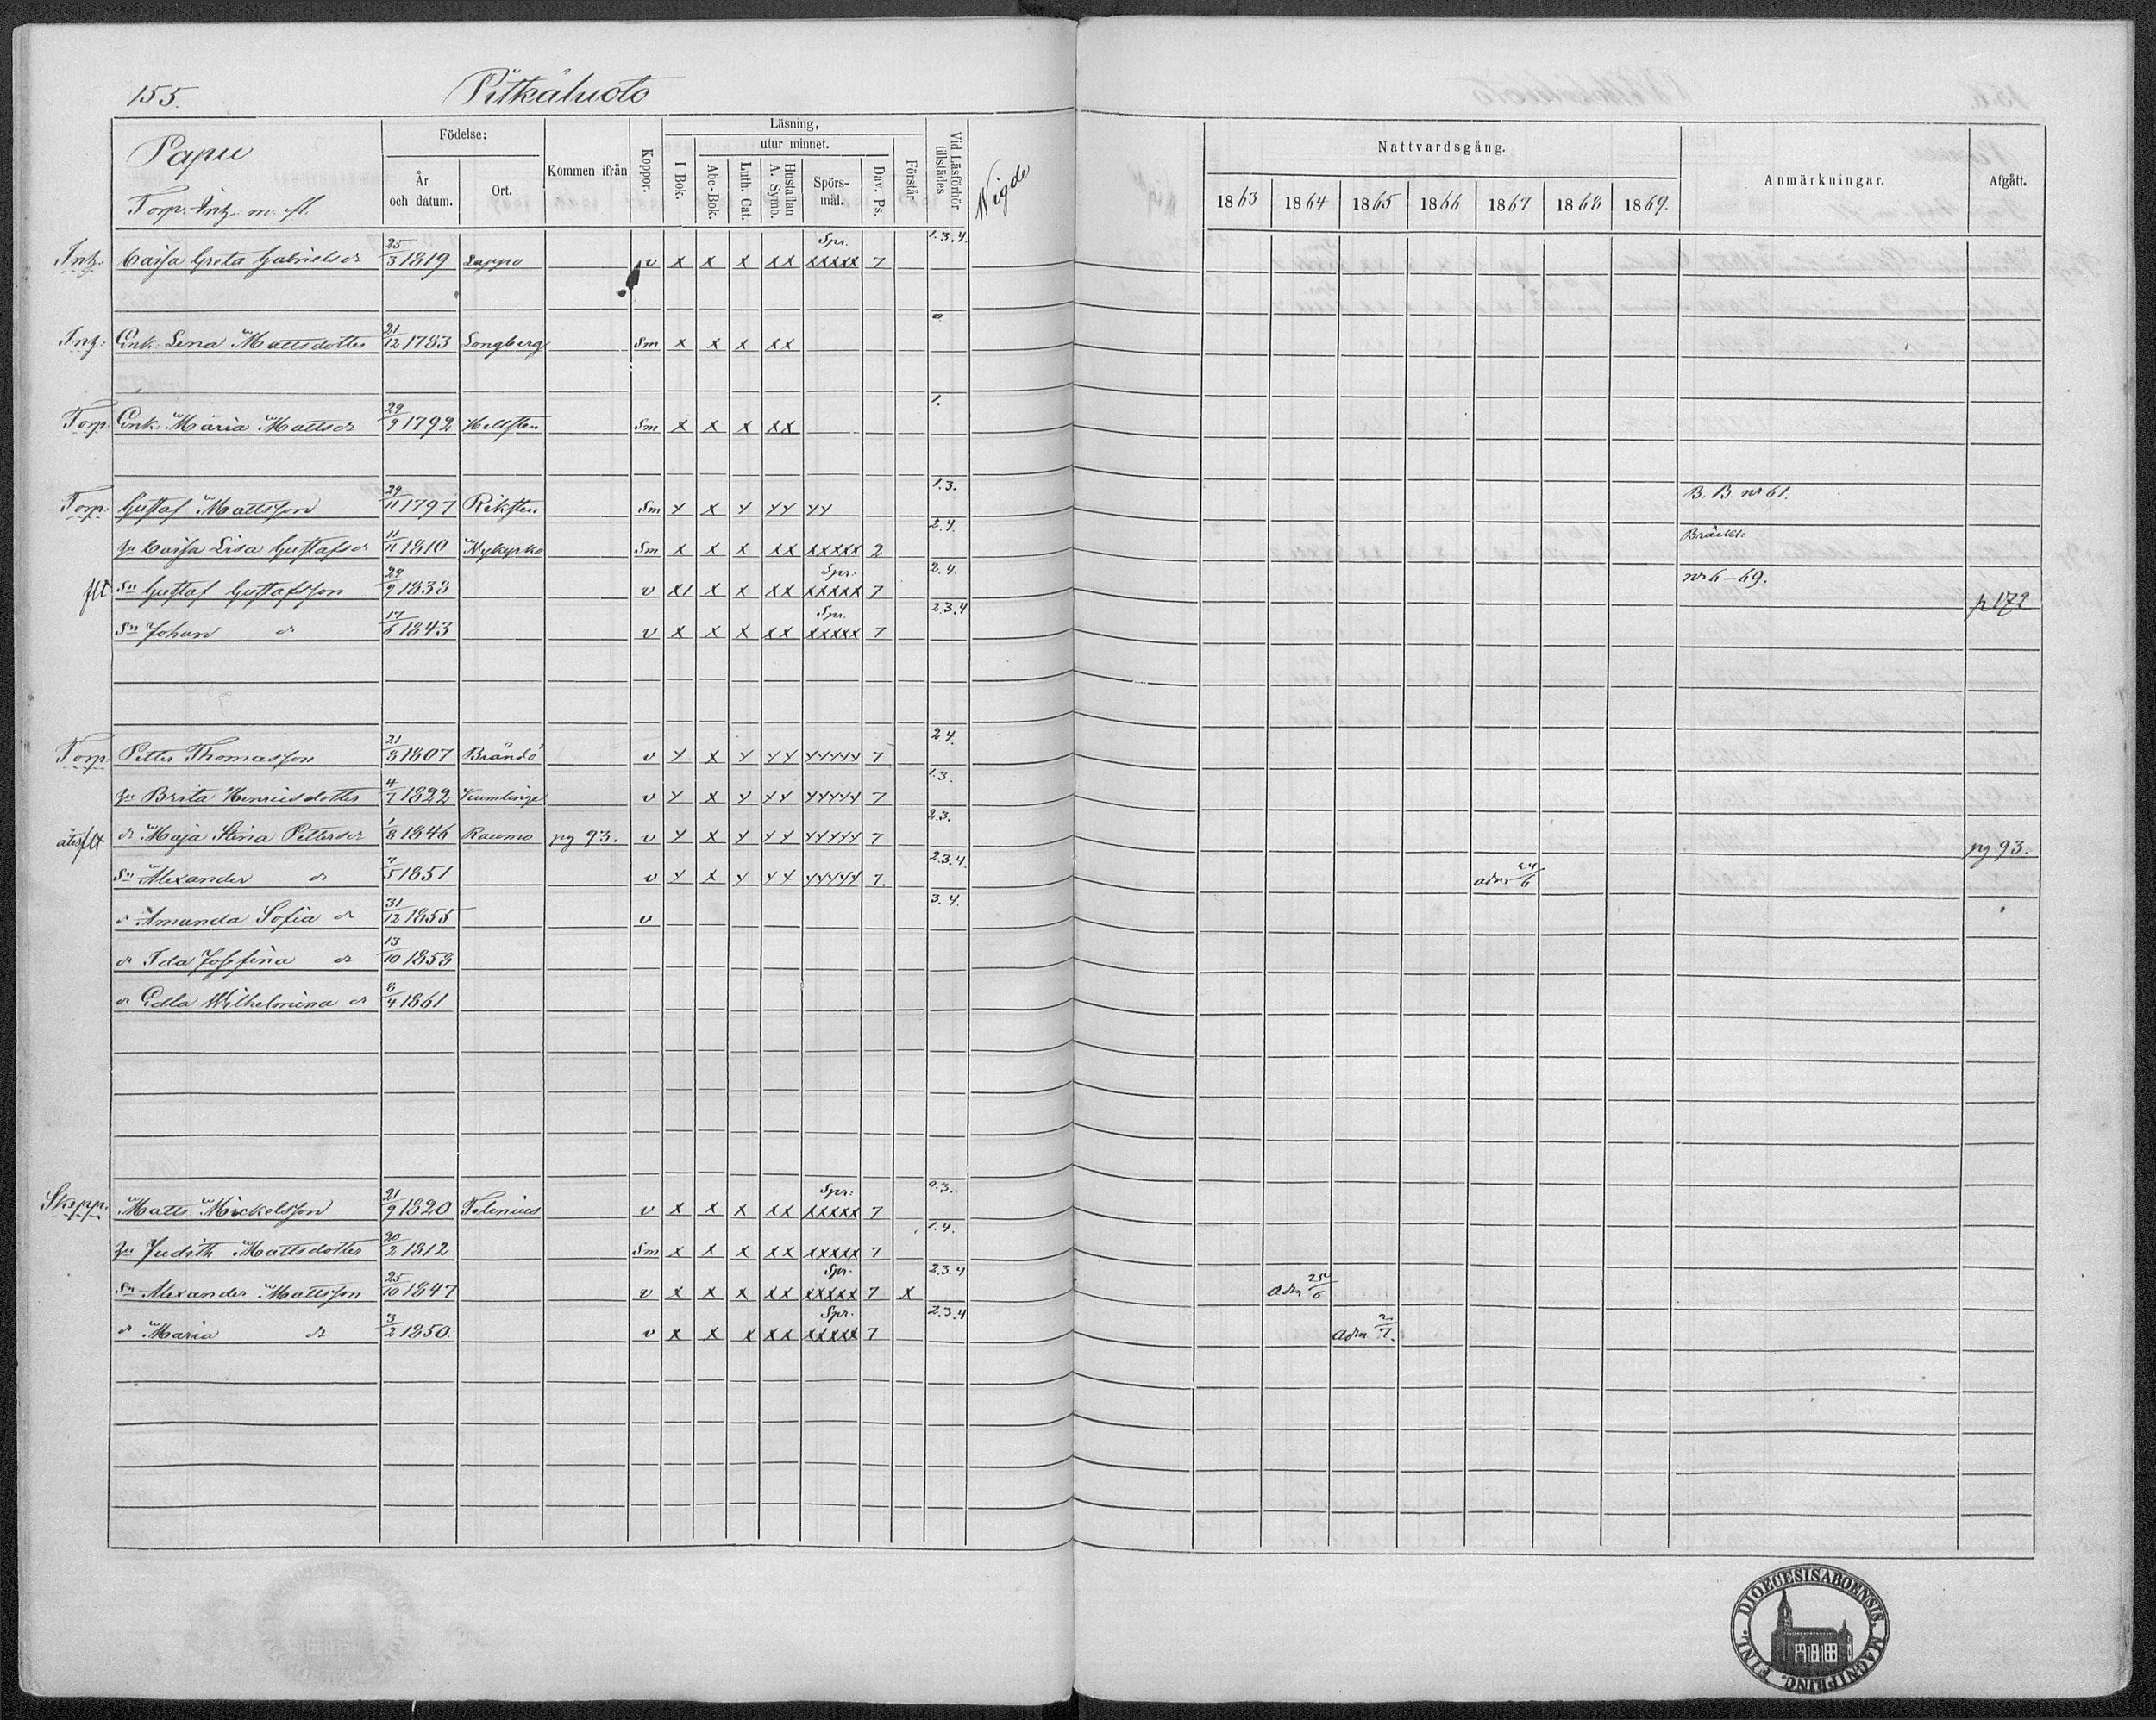 155. Pitkäluoto
Papu
Torp. Inh: m. fl.
Födelse:
År och datum.
Ort.
Kommen ifrån
Koppor.
Läsning,
I Bok.
utur minnet.
Abc-Bok.
Luth. Cat.
Hustaflan A. Symb.
Spörs-mål.
Dav. Ps.
Förstår
Vid Läsförhör tillstädes
Wigde
Nattvardsgång.
1863 1864 1865 1866 1867 1868 1869.
Anmärkningar.
Afgått.
Inh: Caisa Greta Gabrielsdr 25/3 1819 Lappo v x x x xx Spr. xxxxx 7 1.3.4.
Inh: Enk: Lena Mattsdotter 21/12 1783 Longberg Sm x x x xx 0
Torp. Enk: Maria Mattsdr 29/9 1792 Hellsten Sm x x x xx 1.
Torp. Gustaf Mattsson 29/11 1797 Riksten Sm x x x xx xx 1.3. B. B. nr 61.
hu Caisa Lisa Gustafsdr 11/11 1810 Nykyrko Sm x x x xx xxxxx 2 2.4. Bräckl:
flt Sn Gustaf Gustafsson 29/9 1838 v x1 x x xx Spr. xxxxx 7 2.4. nr 6-69. p 172
Sn Johan dr 17/6 1843 v x x x xx Spr. xxxxx 7 2.3.4
Torp. Petter Thomasson 21/8 1807 Brändö v x x x xx xxxxx 7 2.4.
hu Brita Henricsdotter 4/7 1822 Kumlinge v x x x xx xxxxx 7 1.3.
åter flt dr Maja Stina Pettersdr 1/8 1846 Raumo pg 93. v x x x xx xxxxx 7 2.3. pg 93.
Sn Alexander dr 7/5 1851 v x x x xx xxxxx 7. 2.3.4. adm 24/6
dr Amanda Sofia dr 31/12 1855 v 3.4.
dr Ida Josefina dr 13/10 1858
dr Edla Wilhelmina dr 8/4 1861
Skepp. Matts Mickelsson 21/9 1820 Felenius v x x x xx Spr: xxxxx 7 0.3.
hu Judith Mattsdotter 20/2 1812 Sm x x x xx xxxxx 7 1.4.
Sn Alexander Mattsson 25/10 1847 v x x x xx Spr. xxxxx 7 x 2.3.4 adm 25/6
dr Maria dr 3/2 1850. v x x x xx Spr. xxxxx 7 2.3.4 adm 2/7.
FINL. DIOECESIS ABOENSIS. MAGNI PRINC.